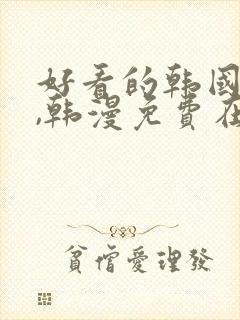 好看的韩国
,韩漫免费在
贫僧爱理发